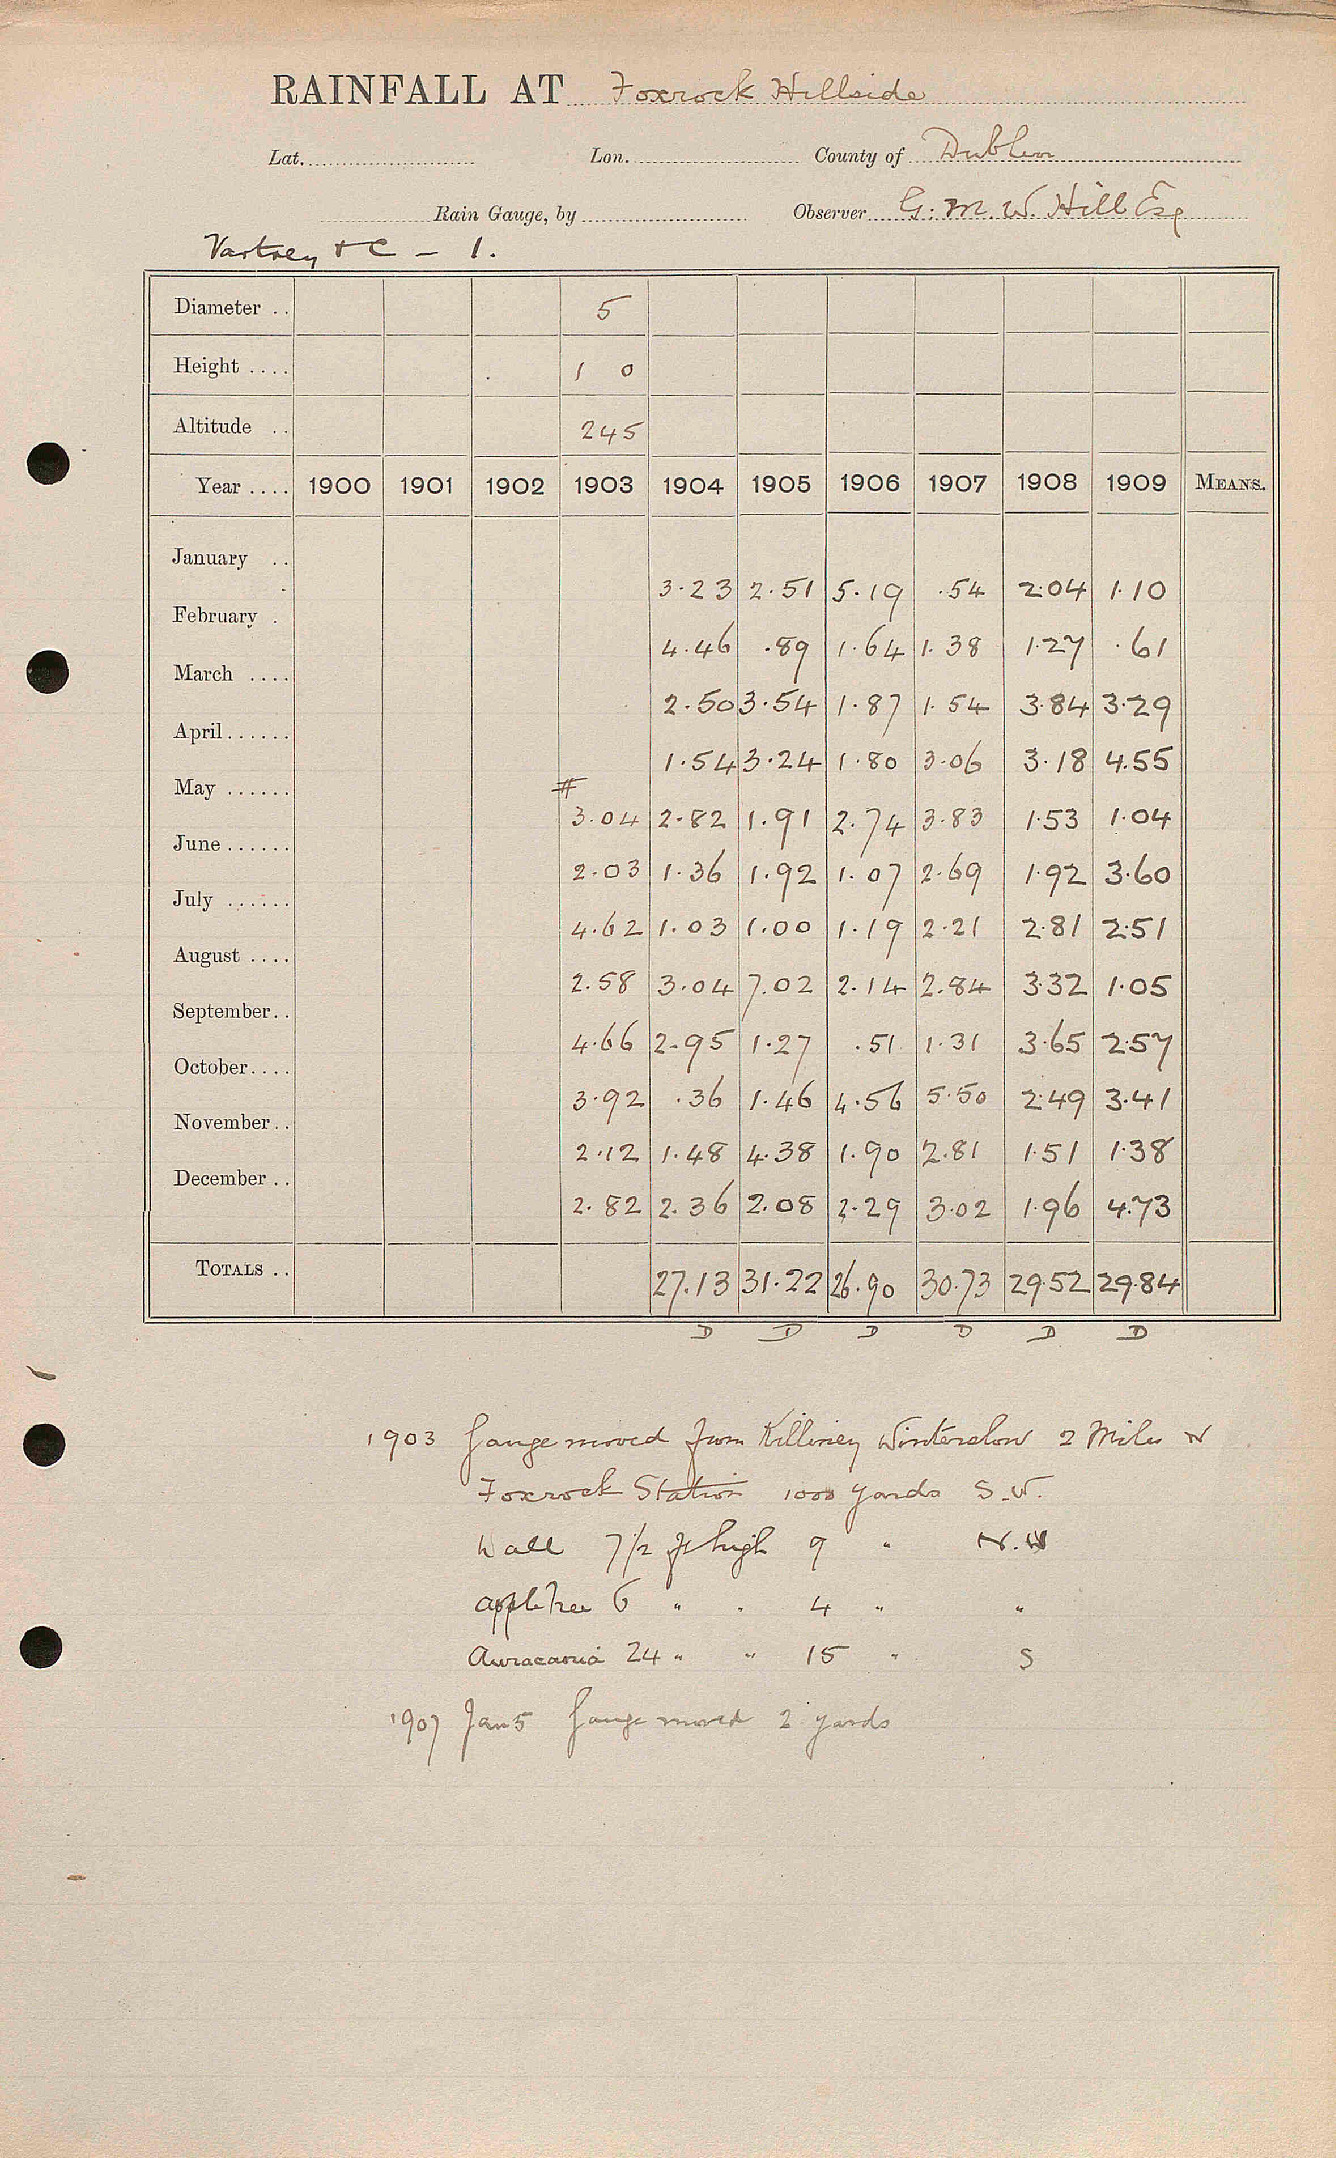 RAINFALL AT Foxrock Hillside
Lat. Lon. County of Dublin
Rain Gauge, by Observer G. M. W. Hill Esq
Vartrey & C – 1.
Diameter .. 5
Height .... 1 0
Altitude .. 245
Year .... 1900 1901 1902 1903 1904 1905 1906 1907 1908 1909 MEANS.
January .. 3.23 2.51 5.19 .54 2.04 1.10
February . 4.46 .89 1.64 1.38 1.27 .61
March .... 2.50 3.54 1.87 1.54 3.84 3.29
April...... 1.54 3.24 1.80 3.06 3.18 4.55
May ...... # 3.04 2.82 1.91 2.74 3.83 1.53 1.04
June...... 2.03 1.36 1.92 1.07 2.69 1.92 3.60
July ...... 4.62 1.03 1.00 1.19 2.21 2.81 2.51
August .... 2.58 3.04 7.02 2.14 2.84 3.32 1.05
September.. 4.66 2.95 1.27 .51 1.31 3.65 2.57
October.... 3.92 .36 1.46 4.56 5.50 2.49 3.41
November.. 2.12 1.48 4.38 1.90 2.81 1.51 1.38
December .. 2.82 2.36 2.08 2.29 3.02 1.96 4.73
TOTALS .. 27.13 31.22 26.90 30.73 29.52 29.84
D D D D D D
1903 Gauge moved from Killiney Winterslow 2 Miles N
Foxrock Station 1000 yards S.W.
Wall 7½ ft high 9 " N.W
apple tree 6 " " 4 " "
Auracaria 24 " " 15 " S
1907 Jan 5 Gauge moved 2 yards